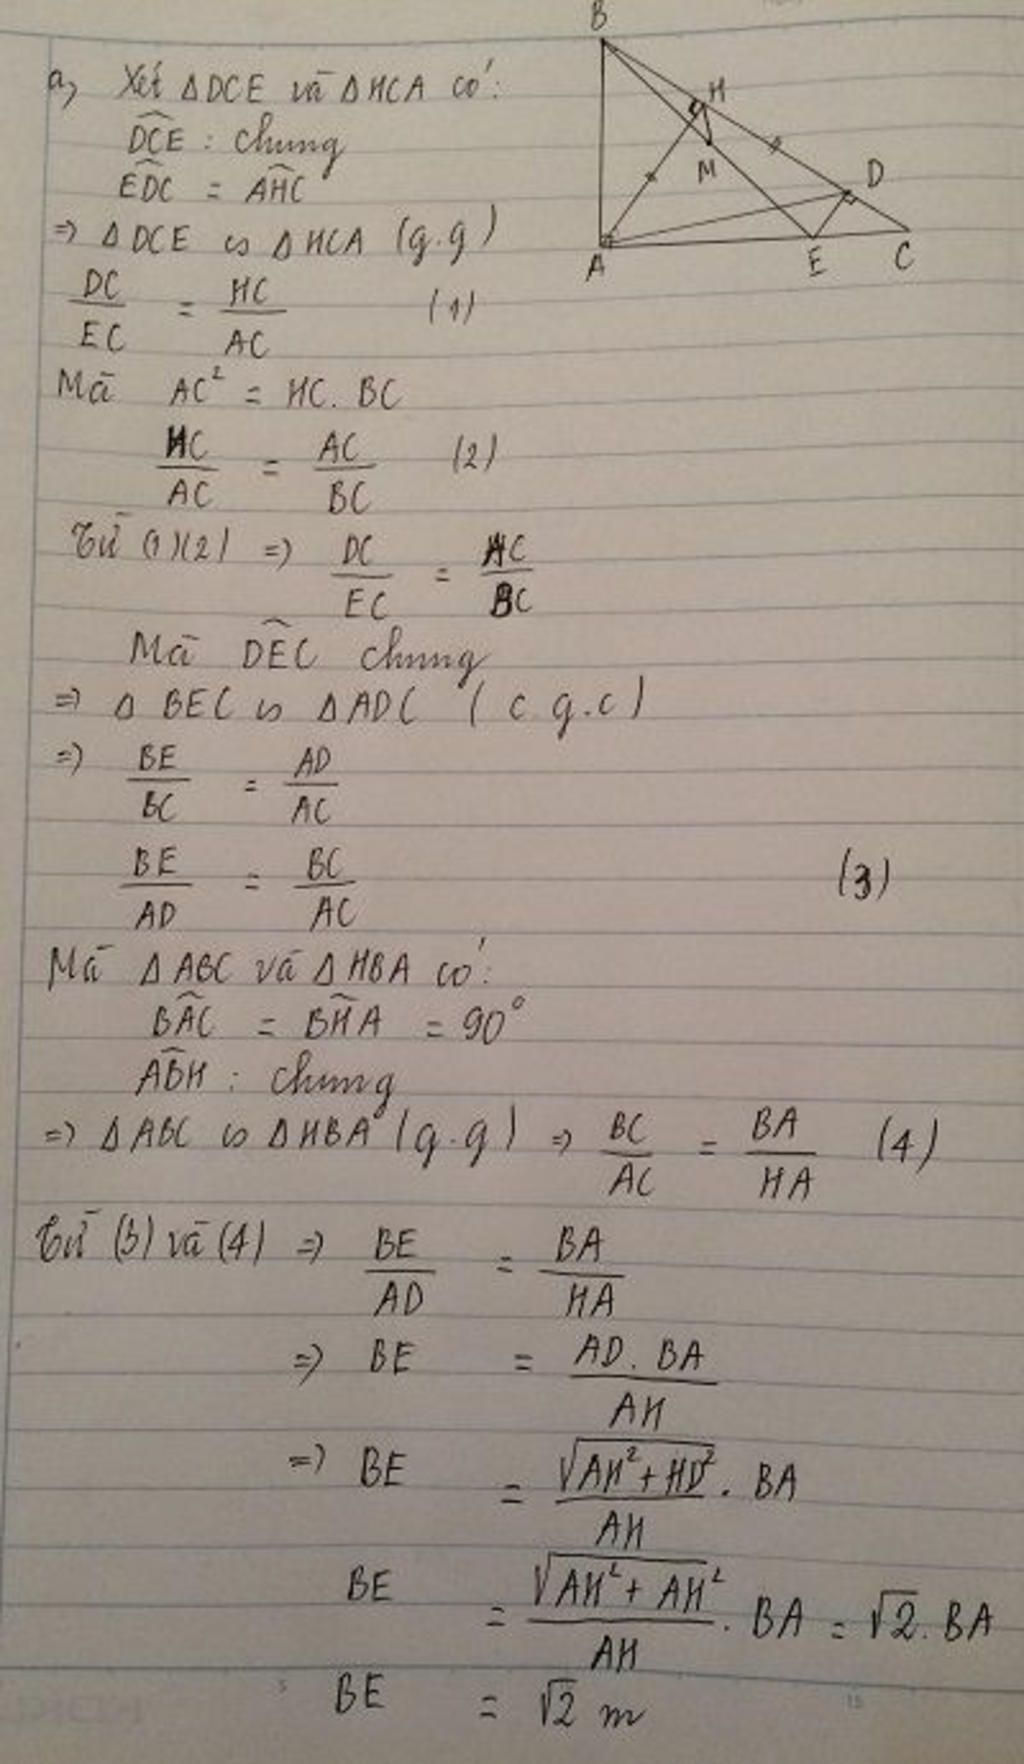 B
H
M
D
A
E
C
a, Xét ΔDCE và ΔHCA có:
D̂CE : chung
ÊDC = ÂHC
=> ΔDCE ∽ ΔHCA (g.g)
DC/EC = HC/AC (1)
Mà AC² = HC. BC
HC/AC = AC/BC (2)
Từ (1)(2) => DC/EC = AC/BC
Mà D̂EC chung
=> Δ BEC ∽ ΔADC ( c g.c)
=> BE/BC = AD/AC
BE/AD = BC/AC (3)
Mà ΔABC và ΔHBA có:
B̂AC = B̂HA = 90°
ÂBH : chung
=> ΔABC ∽ ΔHBA (g.g) => BC/AC = BA/HA (4)
Từ (3) và (4) => BE/AD = BA/HA
=> BE = AD. BA/AH
=> BE = √(AH² + HD²)/AH . BA
BE = √(AH² + AH²)/AH . BA = √2. BA
BE = √2 m